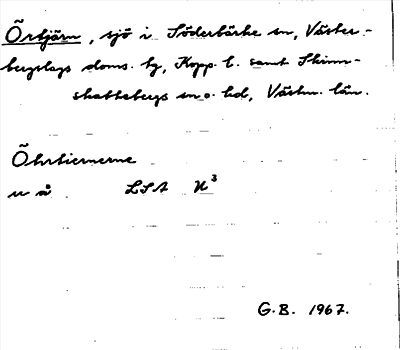 Örtjärn, sjö i Söderbärke sn, Väster-
bergslags doms. bg, Kopp. l. samt Skinn-
skattebergs sn o. hd, Västm. län.
Öhrtiernerne
u å LSA U³
G.B. 1967.